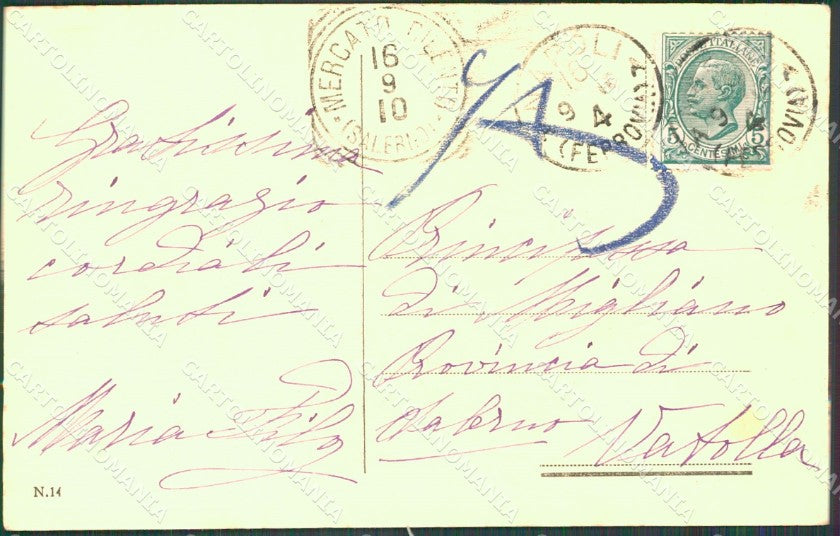 MERCATO CILENTO
16
9
10
(SALERNO)
NAPOLI
9
4
(FERROVIA)
POSTE ITALIANE
5 5
CENTESIMI
Gratissima
ringrazio
cordiali
saluti
Maria
Principessa
di Migliano
Provincia di
Salerno Vatolla
N.14
CARTOLINOMANIA